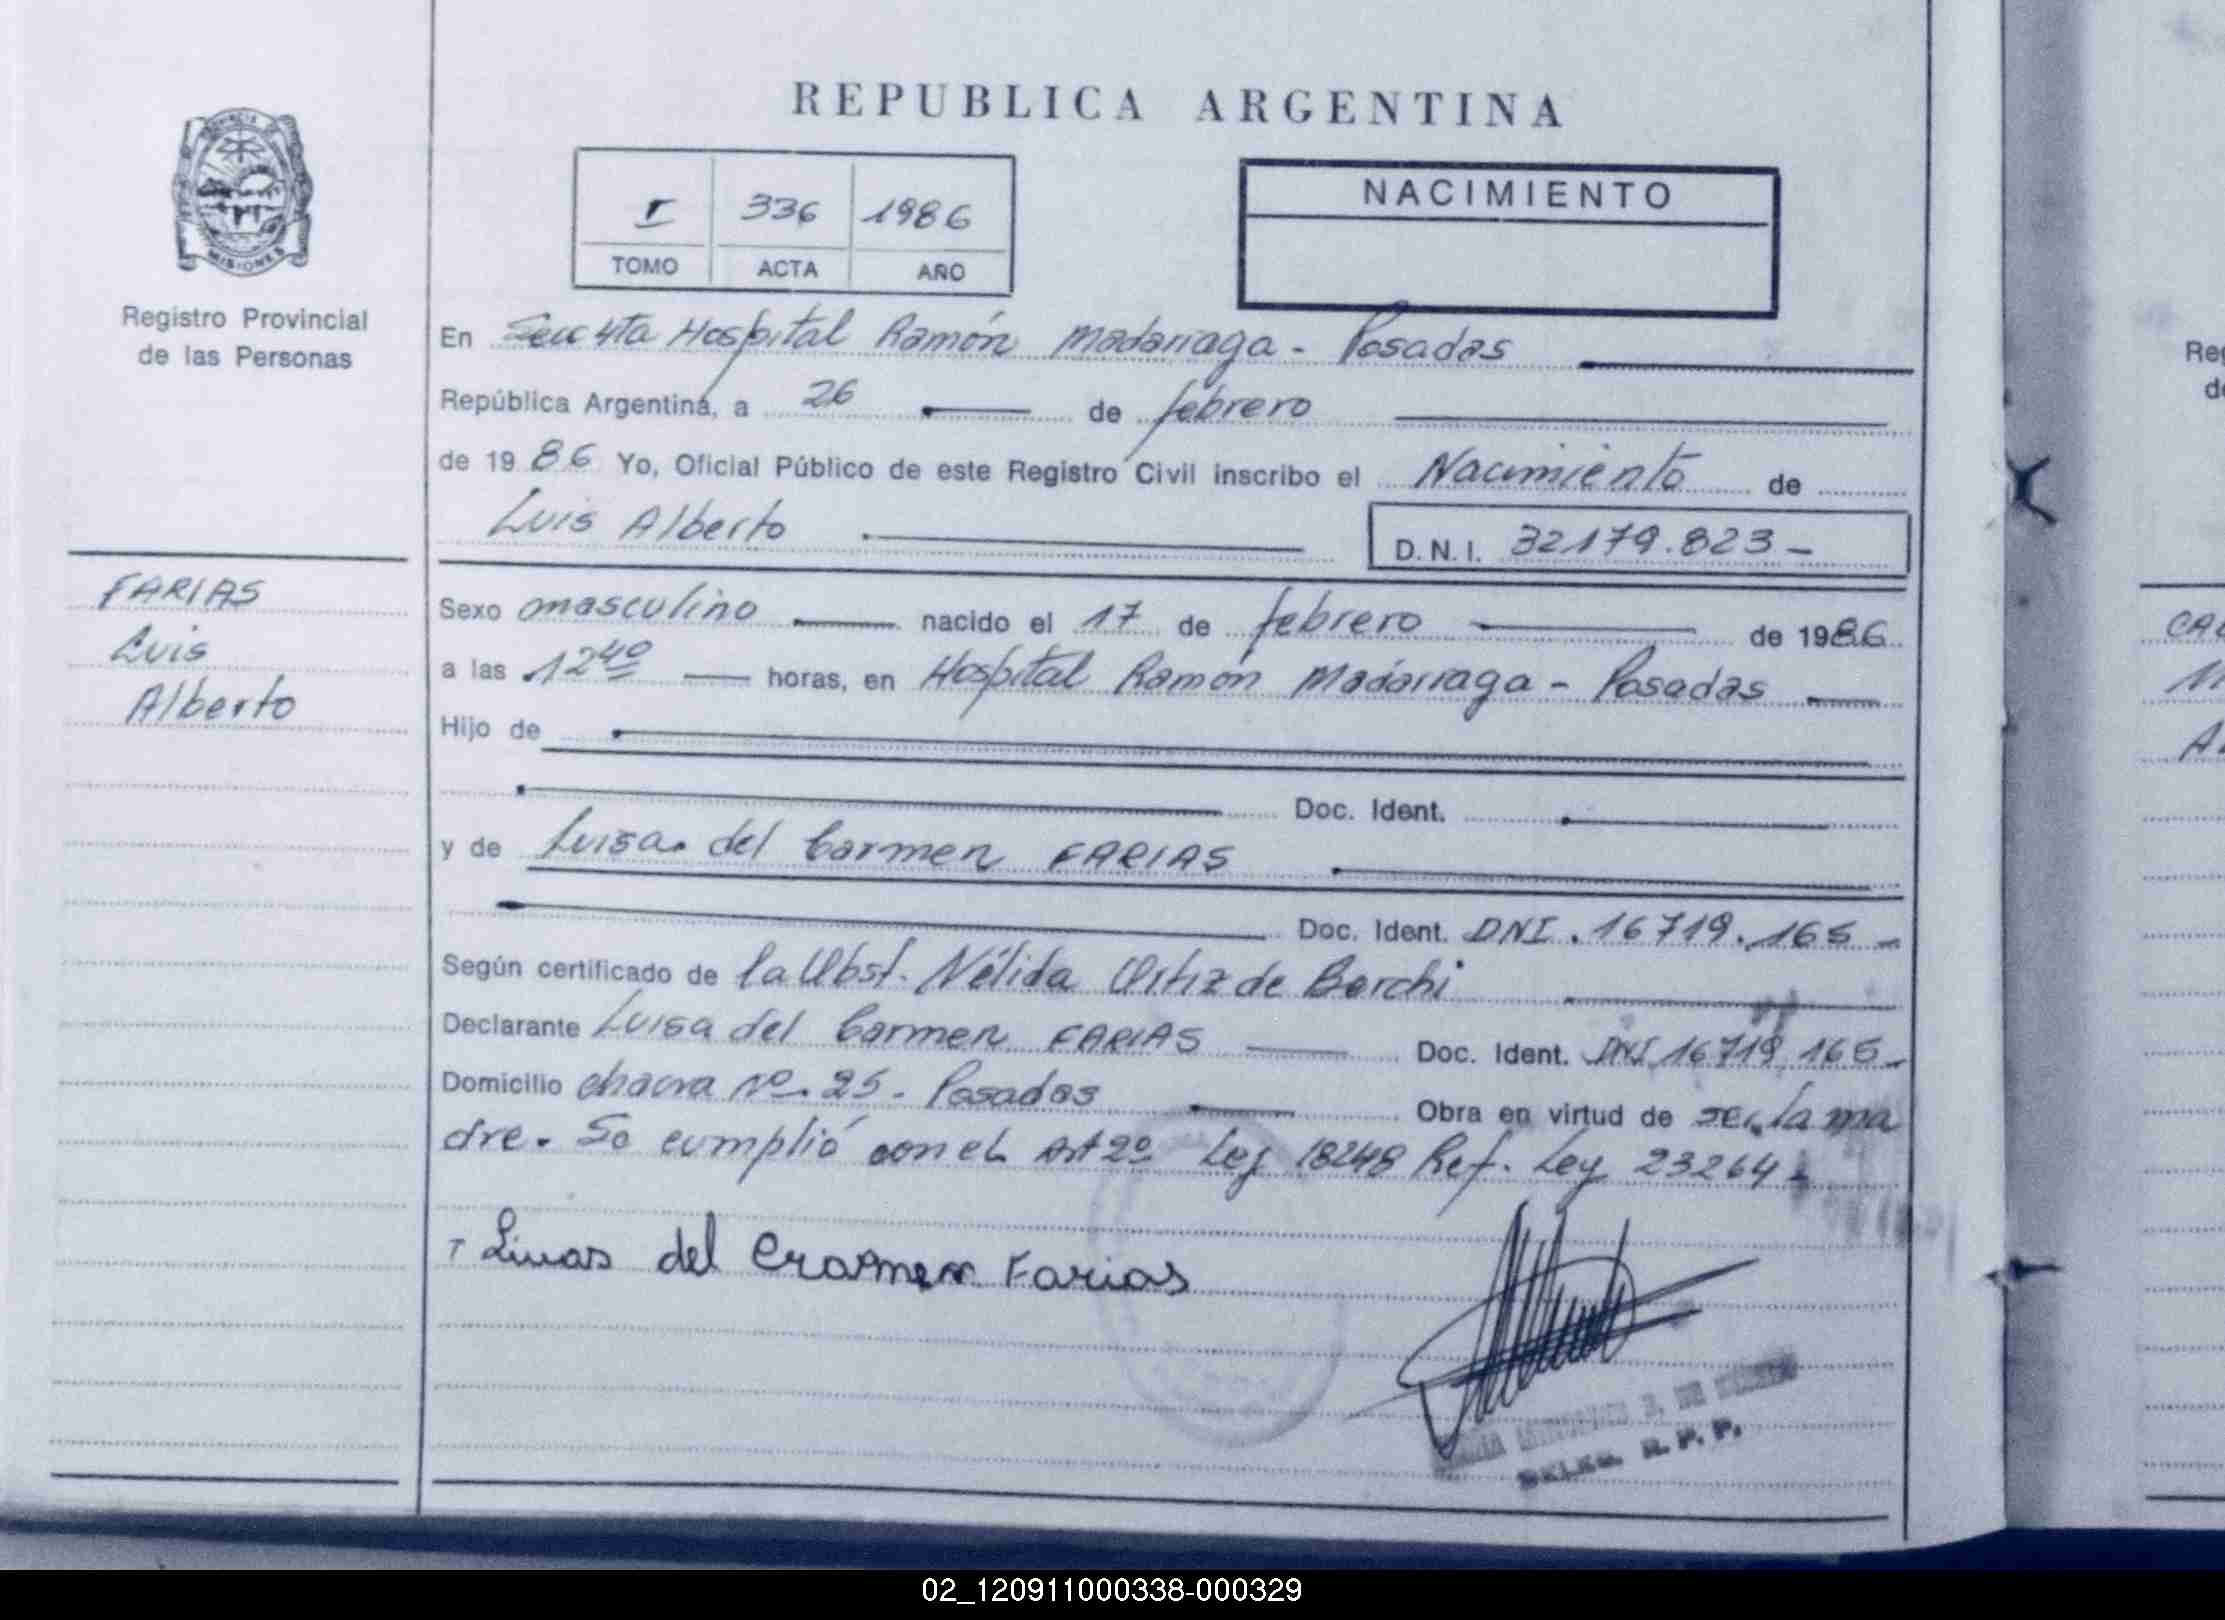 REPUBLICA ARGENTINA
PROVINCIA DE
MISIONES
Registro Provincial
de las Personas
I 336 1986
TOMO ACTA AÑO
NACIMIENTO
En Secc 4ta Hospital Ramón Madariaga - Posadas
República Argentina, a 26 de febrero
de 1986 Yo, Oficial Público de este Registro Civil inscribo el Nacimiento de
Luis Alberto D.N.I. 32179.823 -
FARIAS
Luis
Alberto
Sexo masculino nacido el 17 de febrero de 1986
a las 12 40 horas, en Hospital Ramón Madariaga - Posadas
Hijo de
Doc. Ident.
y de Luisa del Carmen FARIAS
Doc. Ident. DNI. 16719.165 -
Según certificado de la Obst. Nélida Ortiz de Borchi
Declarante Luisa del Carmen FARIAS Doc. Ident. DNI 16719.165 -
Domicilio chacra Nº. 25 - Posadas Obra en virtud de ser la ma
dre. Se cumplió con el Art 2º Ley 18248 Ref. Ley 23264 -
Liuas del Cramen Farias
R. P. P.
Reg
de
02_120911000338-000329